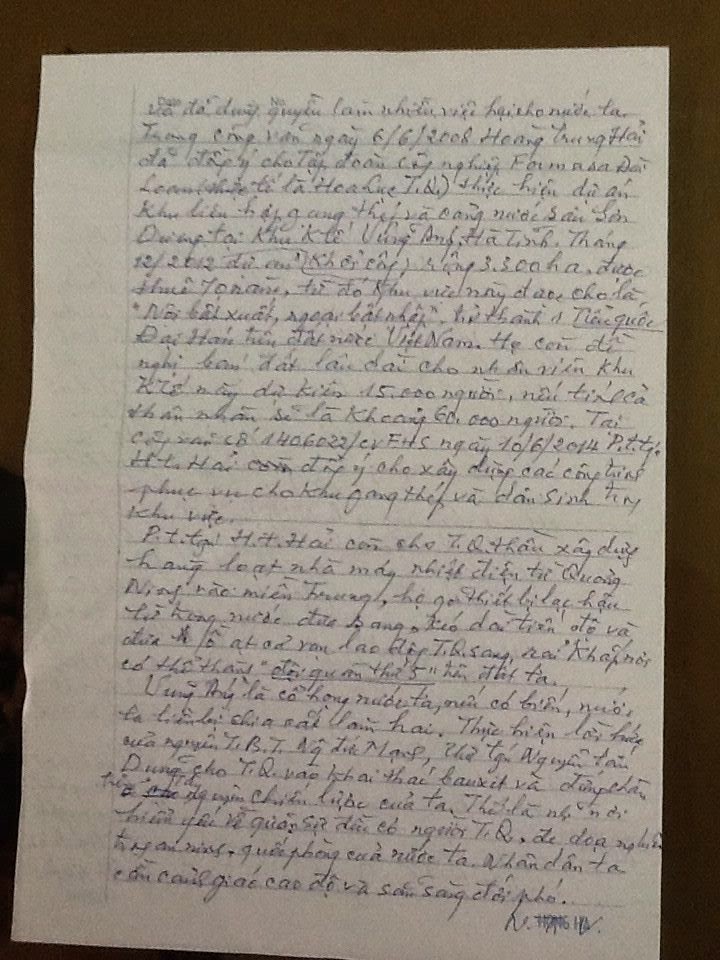 và đã dùng quyền làm nhiều việc hại cho nước ta.
Trong công văn ngày 6/6/2008 Hoàng Trung Hải
đã đồng ý cho Tập đoàn công nghiệp Formosa Đài
Loan (thực tế là Hoa Lục T.Q.) thực hiện dự án
Khu liên hợp gang thép và cảng nước sâu Sơn
Dương tại Khu K tế Vũng Áng, Hà Tĩnh. Tháng
12/2012 dự án (Khởi công) rộng 3.300 ha, được
thuê 70 năm, từ đó khu vực này được cho là
"Nội bất xuất, ngoại bất nhập", trở thành 1 Tiểu quốc
Đại Hán trên đất nước Việt Nam. Họ còn đề
nghị bán đất lâu dài cho nhân viên khu
K tế này dự kiến 15.000 người, nếu tính cả
thân nhân sẽ là khoảng 60.000 người. Tại
công văn số 1406022/CV FHS ngày 10/6/2014 P.t.tg.
H.t. Hải đồng ý cho xây dựng các công trình
phục vụ cho khu gang thép và dân sinh trg
khu vực.
P.t.tg H.t. Hải còn cho T.Q. thầu xây dựng
hàng loạt nhà máy nhiệt điện từ Quảng
Ninh vào miền Trung, họ gửi thiết bị lạc hậu
từ trong nước đưa sang, kéo dài tiến độ và
đưa ồ ạt cơ man lao động T.Q. sang, rải khắp nơi
có thể thành "đội quân thứ 5" trên đất ta.
Vũng Áng là cổ họng nước ta, nếu có biến, nước
ta liền bị chia cắt làm hai. Thực hiện lời hứa
của nguyên T.B.T. Ng Đức Mạnh, Thủ tg Nguyễn Tấn
Dũng cho T.Q. vào khai thác bauxit và đứng chân
trên nguyên chiến lược của ta. Thế là nh nơi
hiểm yếu về quân sự đều có người T.Q., đe dọa nghiêm
trg an ninh, quốc phòng của nước ta. Nhân dân ta
cần cảnh giác cao độ và sẵn sàng đối phó.